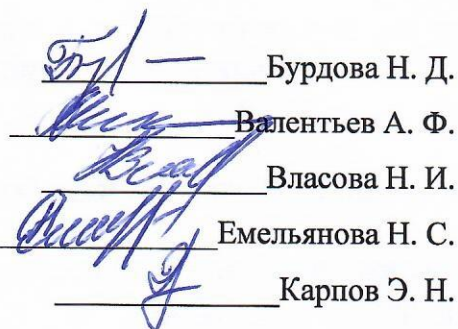 Бурдова Н. Д.
Валентьев А. Ф.
Власова Н. И.
Емельянова Н. С.
Карпов Э. Н.